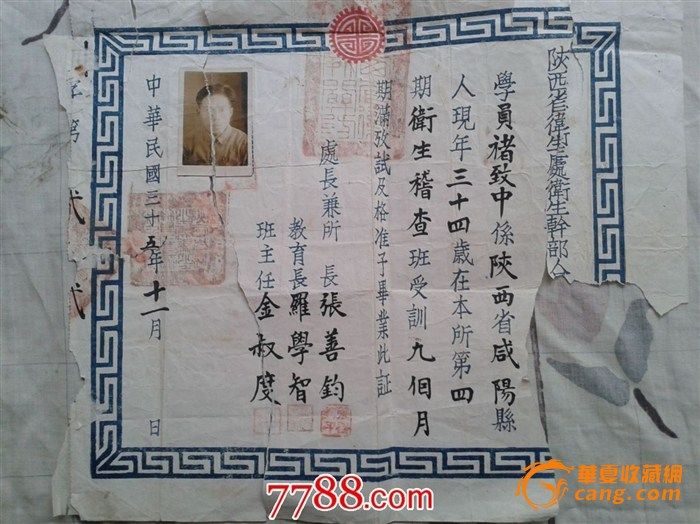 陝西省衛生處衛生幹部
學員褚致中係陝西省咸陽縣
人現年三十四歲在本所第四
期衛生稽查班受訓九個月
期滿攷試及格准予畢業此証
處長兼所長張善鈞
教育長羅學智
班主任金叔度
中華民國三十五年十一月 日
字第弍弍
7788.com
華夏收藏網
cang.com